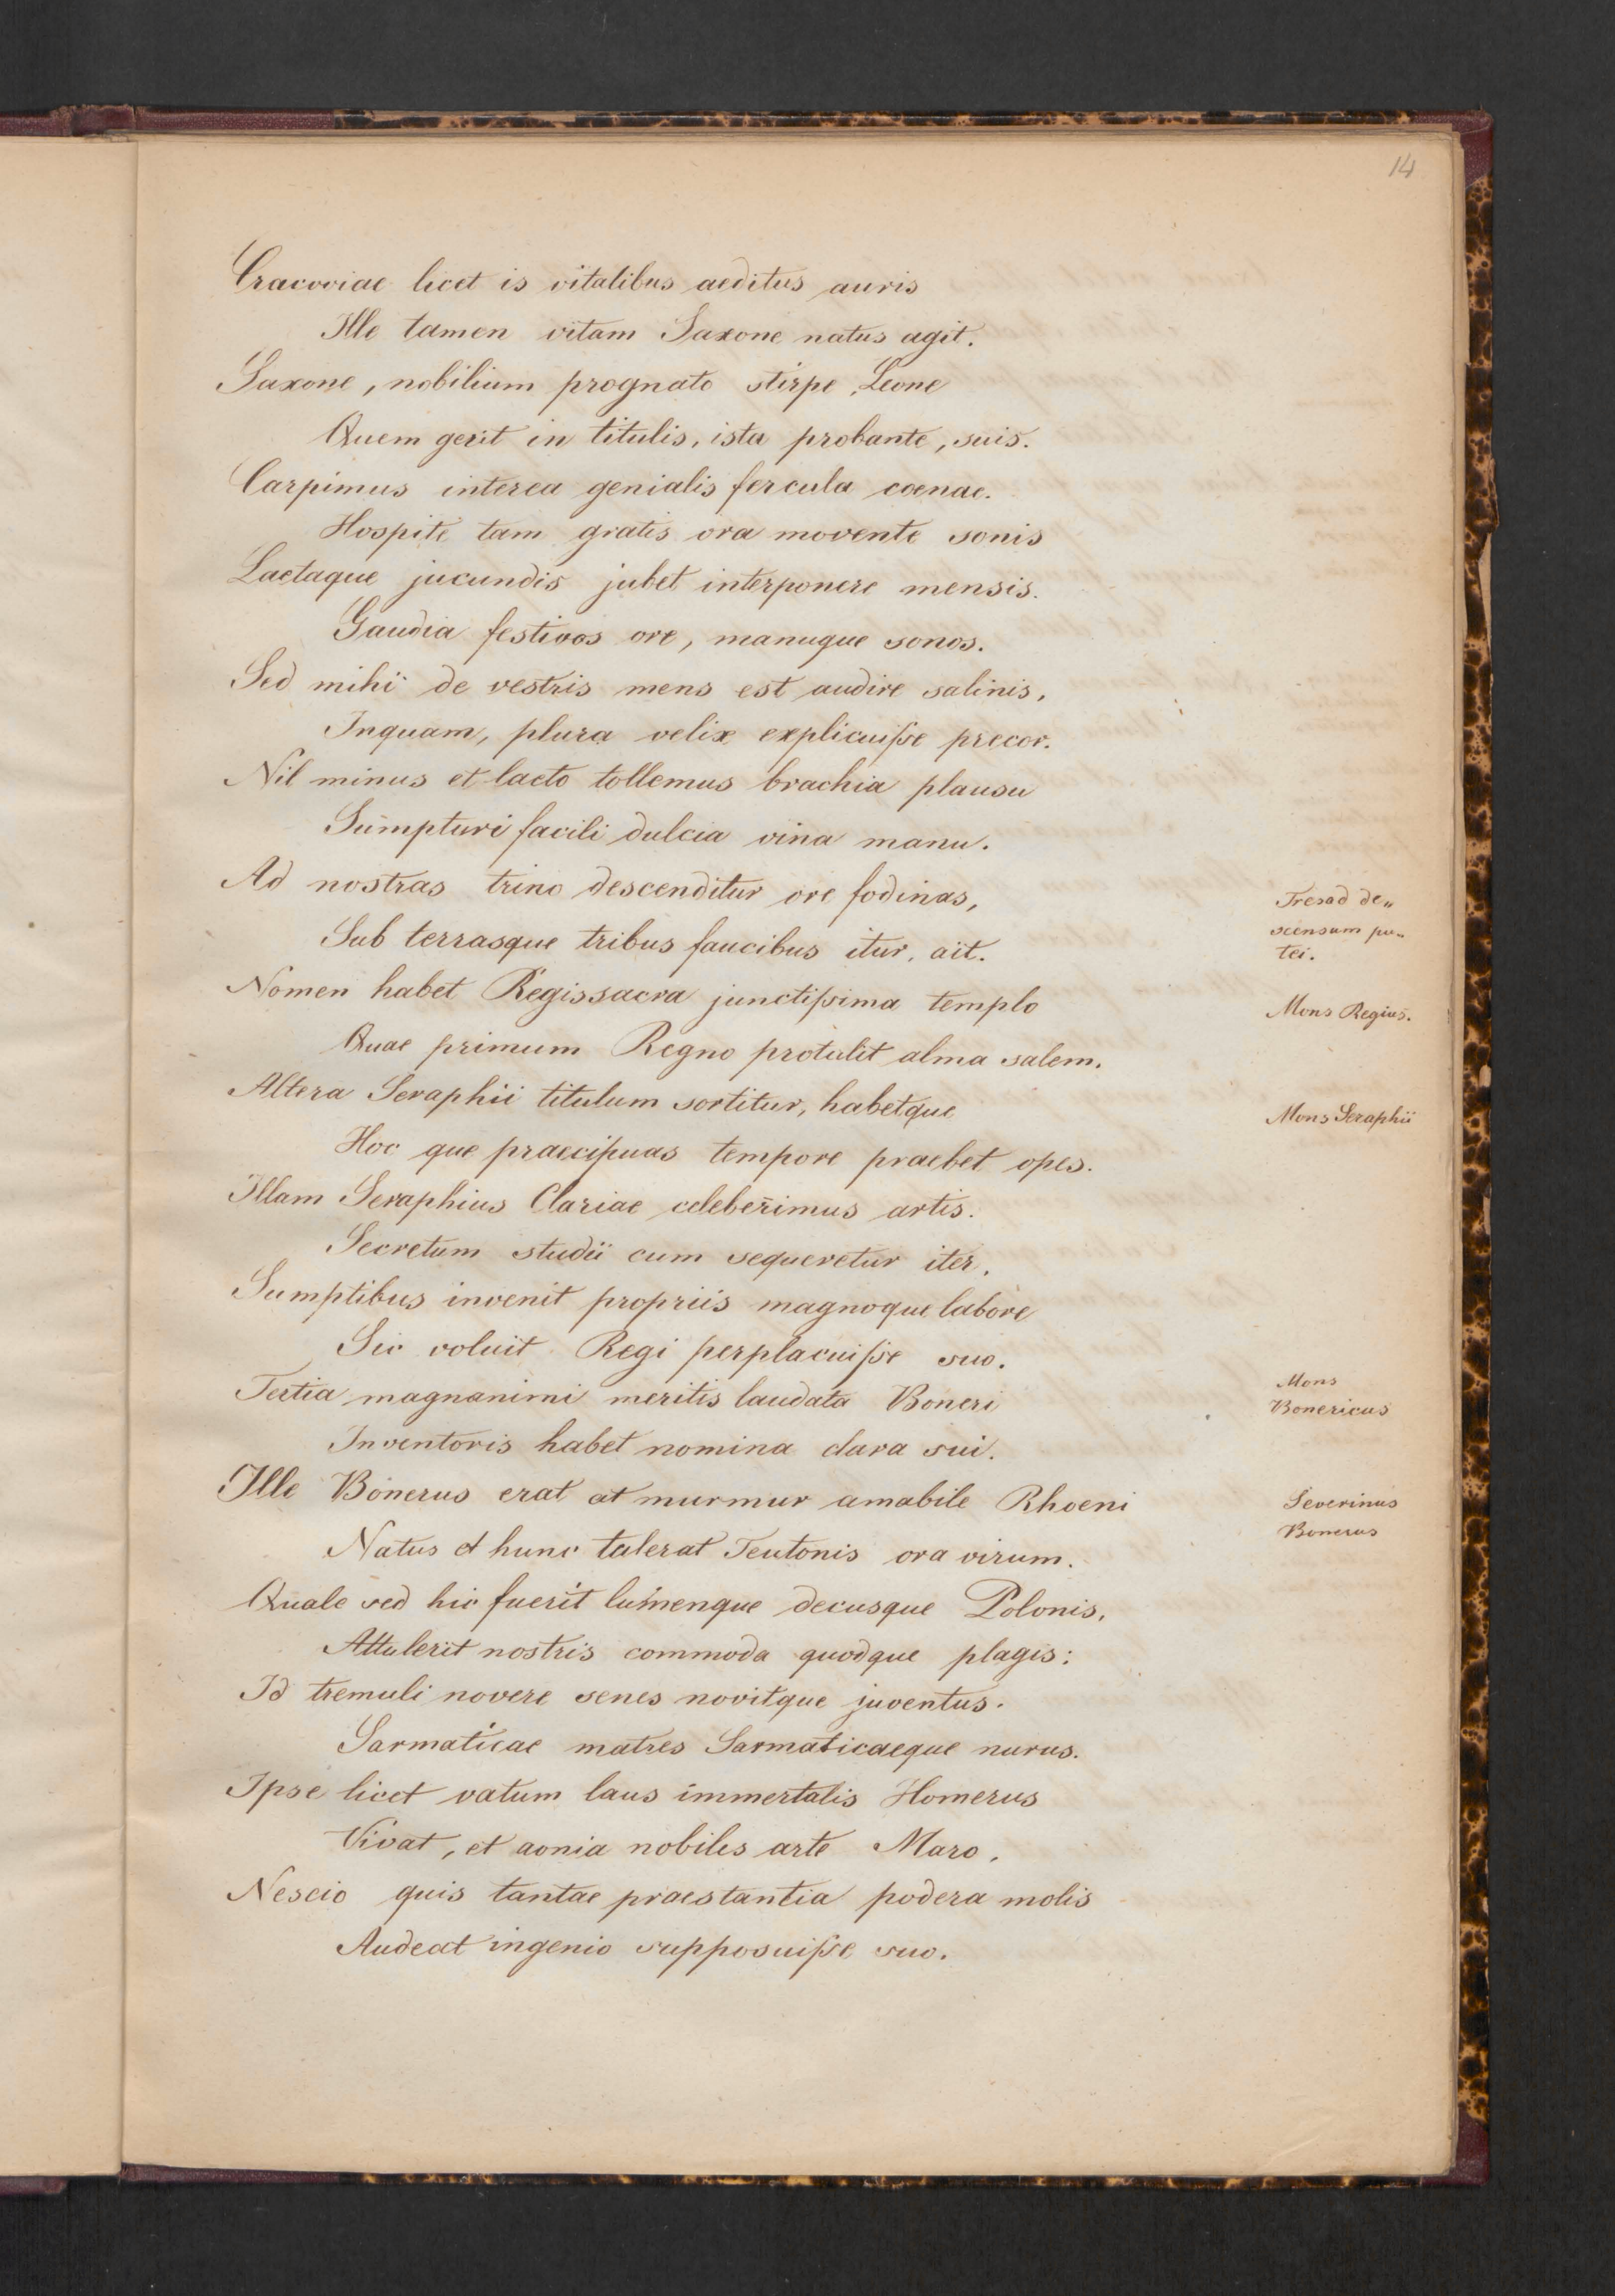 14
Cracoviae licet is vitalibus aeditus auris
Ille tamen vitam Saxone natus agit.
Saxone, nobilium prognato stirpe, Leone
Quem gerit in titulis, ista probante, suis.
Carpimus interea genialis fercula coenae.
Hospite tam gratis ora movente sonis
Laetaque jucundis jubet interponere mensis.
Gaudia festivos ore, manuque sonos.
Sed mihi de vestris mens est audire salinis,
Inquam, plura velix explicuiſse precor.
Nil minus et laeto tollemus brachia plausu
Sumpturi facili dulcia vina manu.
Ad nostras trino descenditur ore fodinas,
Tres ad de„
Sub terrasque tribus faucibus itur, ait.
scensum pu„
tei.
Nomen habet Regis sacra junctiſsima templo
Mons Regius.
Quae primum Regno protulit alma salem.
Altera Seraphii titulum sortitur, habetque
Mons Seraphii
Hoc que praecipuas tempore praebet opes.
Illam Seraphius Clariae celeber̄imus artis.
Secretum studii cum sequeretur iter.
Sumptibus invenit propriis magnoque labore
Sic voluit Regi perplacuiſse suo.
Tertia magnanimi meritis laudata Boneri
Mons
Bonericus
Inventoris habet nomina clara sui.
Ille Bonerus erat at murmur amabile Rhoeni
Severinus
Bonerus
Natus et hunc tulerat Teutonis ora virum.
Quale sed hic fuerit lumenque decusque Polonis,
Attulerit nostris commoda quodque plagis:
Id tremuli novere senes novitque juventus.
Sarmaticae matres Sarmaticaeque nurus.
Ipse licet vatum laus immertalis Homerus
Vivat, et aonia nobiles arte Maro.
Nescio quis tantae praestantia podera molis
Audeat ingenio supposuiſse suo.